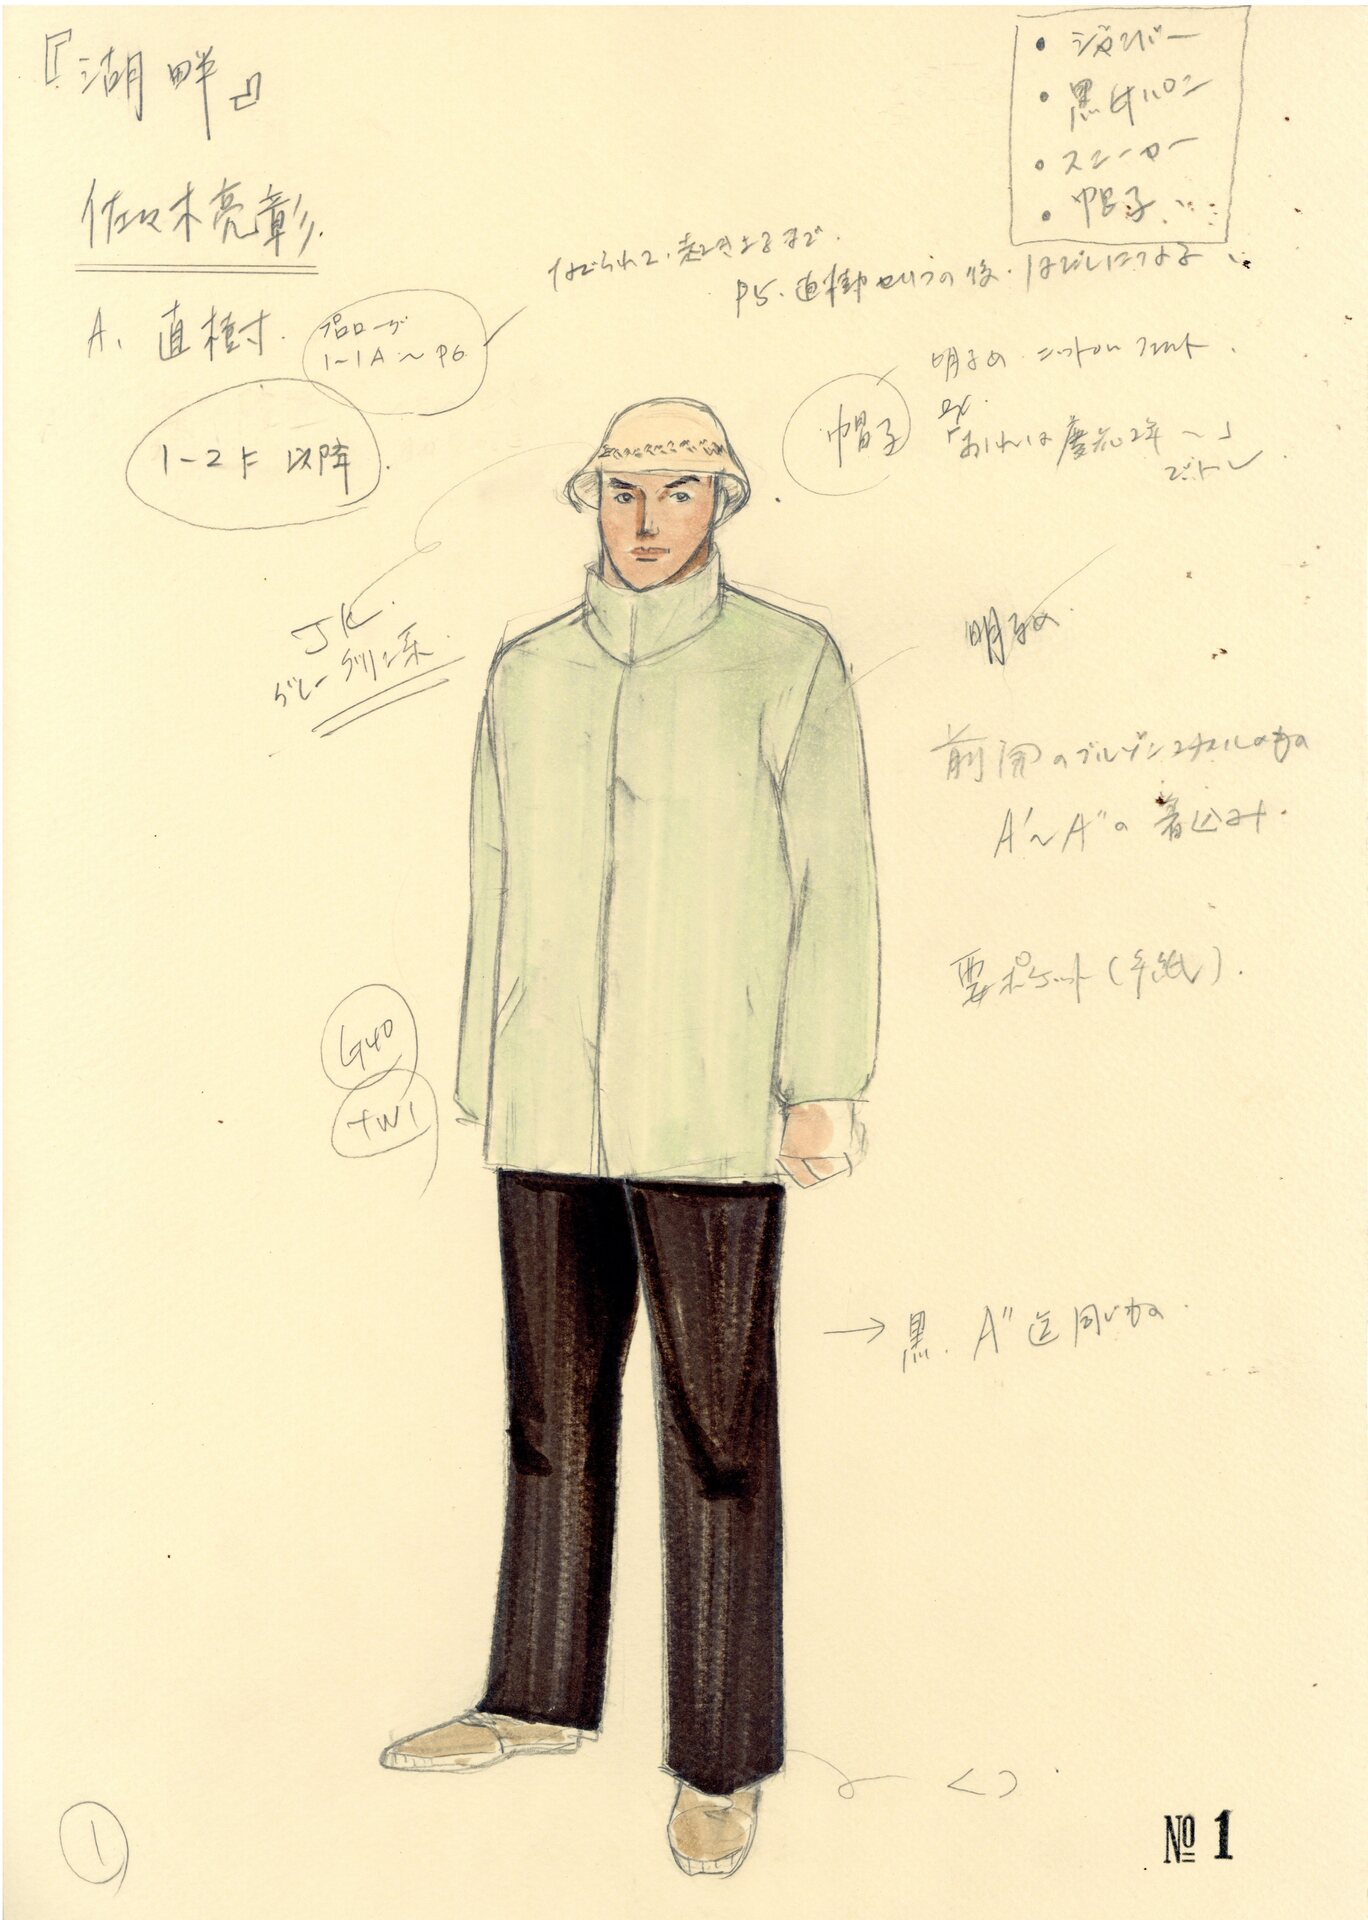 『湖畔』
佐々木亮彰.
A、直樹.
プロローグ
1-1A～P6
1-2F 以降.
・ジャンパー
・黒ズボン
・スニーカー
・帽子
なぐられて、起き上るまで.
P5. 直樹せりふの後.はだしになる
帽子
明るめ ニットor フェルト.
「おれは慶元2年～」
でトル
JK.
グレーグリーン系.
明るめ.
前開のブルゾンスタイルのもの
A'～A"の着込み.
要ポケット(手紙).
G40
YW1
→黒. A"迄同じもの.
くつ.
1
№ 1